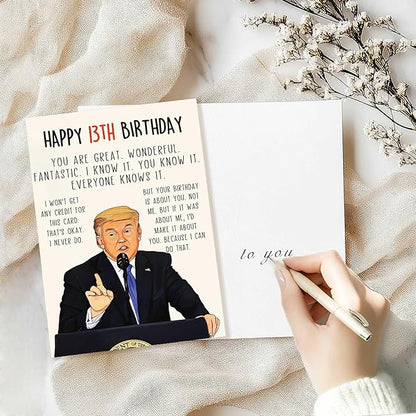 HAPPY 13TH BIRTHDAY
YOU ARE GREAT. WONDERFUL.
FANTASTIC. I KNOW IT. YOU KNOW IT.
EVERYONE KNOWS IT.
I WON'T GET
ANY CREDIT FOR
THIS CARD.
THAT'S OKAY.
I NEVER DO.
BUT YOUR BIRTHDAY
IS ABOUT YOU. NOT
ME. BUT IF IT WAS
ABOUT ME, I'D
MAKE IT ABOUT
YOU. BECAUSE I CAN
DO THAT.
to you